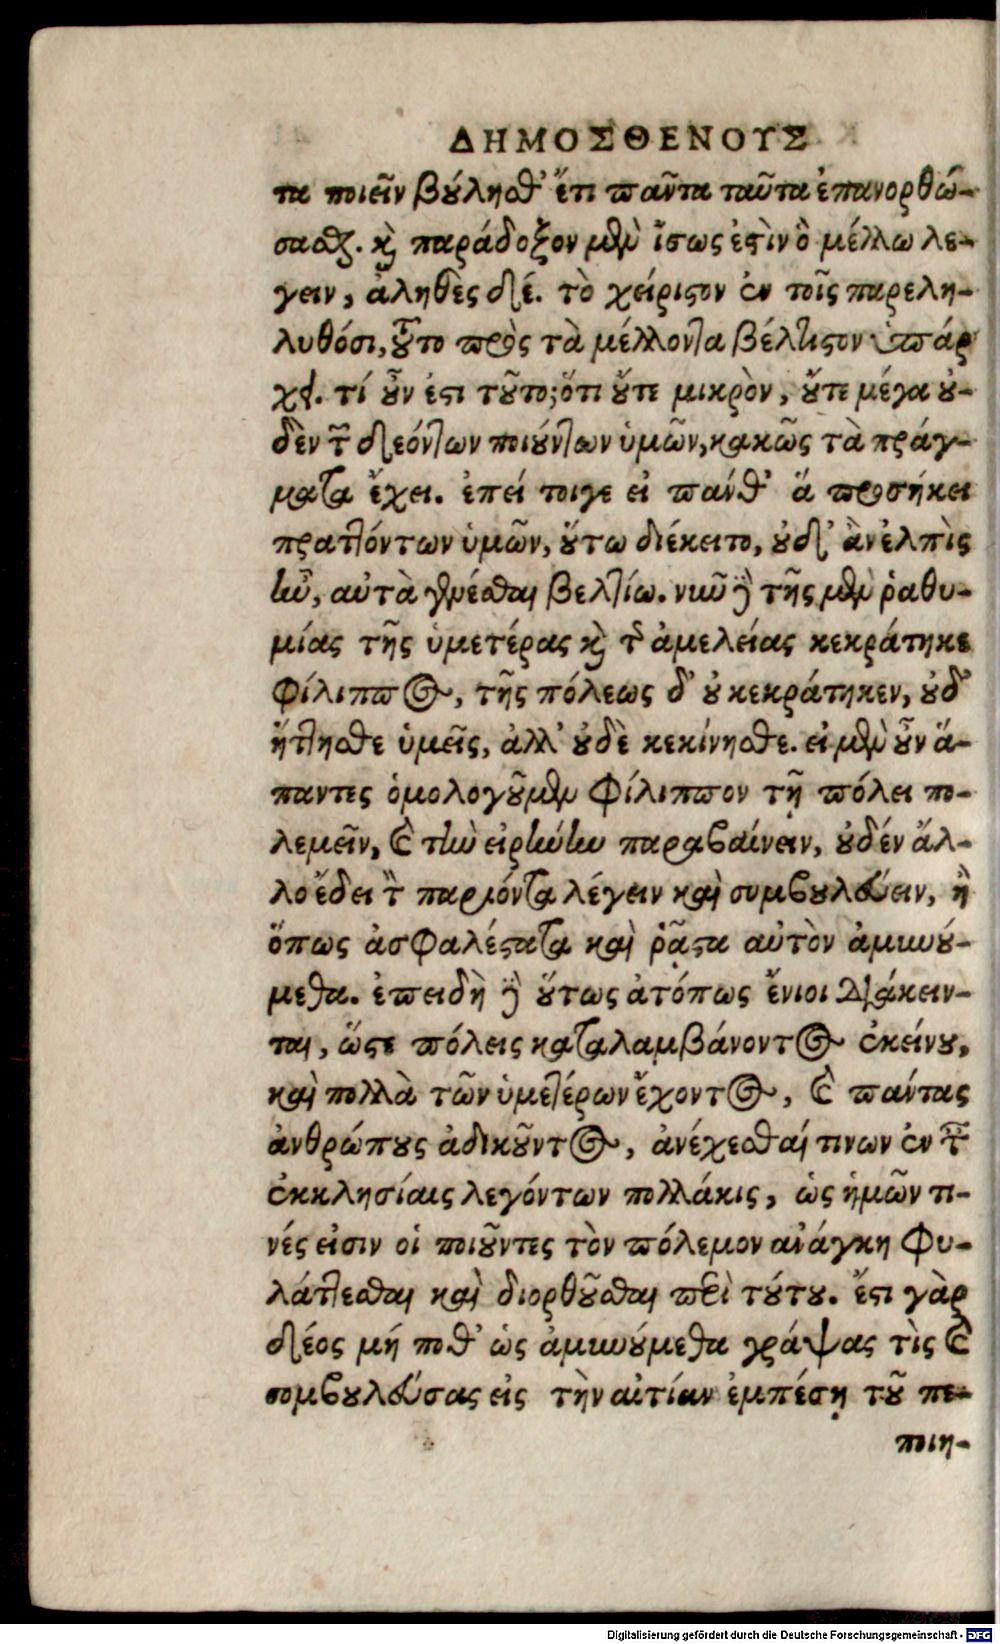 ΔΗΜΟΣΘΕΝΟΥΣ
τα ποιεῖν βούλησθ' ἔτι παντα ταῦτα ἐπανορθώ-
σασθαι. καὶ παράδοξον μὲν ἴσως ἐστὶν ὃ μέλλω λέ-
γειν, ἀληθὲς δέ. τὸ χείριστον ἐν τοῖς παρελη-
λυθόσι, τοῦτο πρὸς τὰ μέλλοντα βέλτιστον ὑπάρ
χει. τί οὖν ἐστι τοῦτο; ὅτι οὔτε μικρὸν, οὔτε μέγα οὐ-
δὲν τῶν δεόντων ποιούντων ὑμῶν, κακῶς τὰ πράγ-
ματα ἔχει. ἐπεί τοιγε εἰ πάνθ' ἃ προσήκει
πραττόντων ὑμῶν, οὕτω διέκειτο, οὐδ' ἂν ἐλπὶς
ἦν, αὐτὰ γενέσθαι βελτίω. νῦν δὲ τῆς μὲν ῥαθυ-
μίας τῆς ὑμετέρας καὶ τῆς ἀμελείας κεκράτηκε
Φίλιππος, τῆς πόλεως δ' οὐ κεκράτηκεν, οὐδ'
ἥττησθε ὑμεῖς, ἀλλ' οὐδὲ κεκίνησθε. εἰ μὲν οὖν ἅ-
παντες ὁμολογοῦμεν Φίλιππον τῇ πόλει πο-
λεμεῖν, καὶ τὴν εἰρήνην παραβαίνειν, οὐδέν ἄλ-
λο ἔδει τὸν παριόντα λέγειν καὶ συμβουλεύειν, ἢ
ὅπως ἀσφαλέστατα καὶ ῥᾷστα αὐτὸν ἀμυνού-
μεθα. ἐπειδὴ δὲ οὕτως ἀτόπως ἔνιοι διάκειν-
ται, ὥστε πόλεις καταλαμβάνοντος ἐκείνου,
καὶ πολλὰ τῶν ὑμετέρων ἔχοντος, καὶ πάντας
ἀνθρώπους ἀδικοῦντος, ἀνέχεσθαί τινων ἐν ταῖς
ἐκκλησίαις λεγόντων πολλάκις, ὡς ἡμῶν τι-
νές εἰσιν οἱ ποιοῦντες τὸν πόλεμον ἀνάγκη φυ-
λάττεσθαι καὶ διορθοῦσθαι περὶ τούτου. ἔστι γὰρ
δέος μή ποθ' ὡς ἀμυνούμεθα γράψας τὶς καὶ
συμβουλεύσας εἰς τὴν αἰτίαν ἐμπέσῃ τοῦ πε-
ποιη-
Digitalisierung gefördert durch die Deutsche Forschungsgemeinschaft - DFG